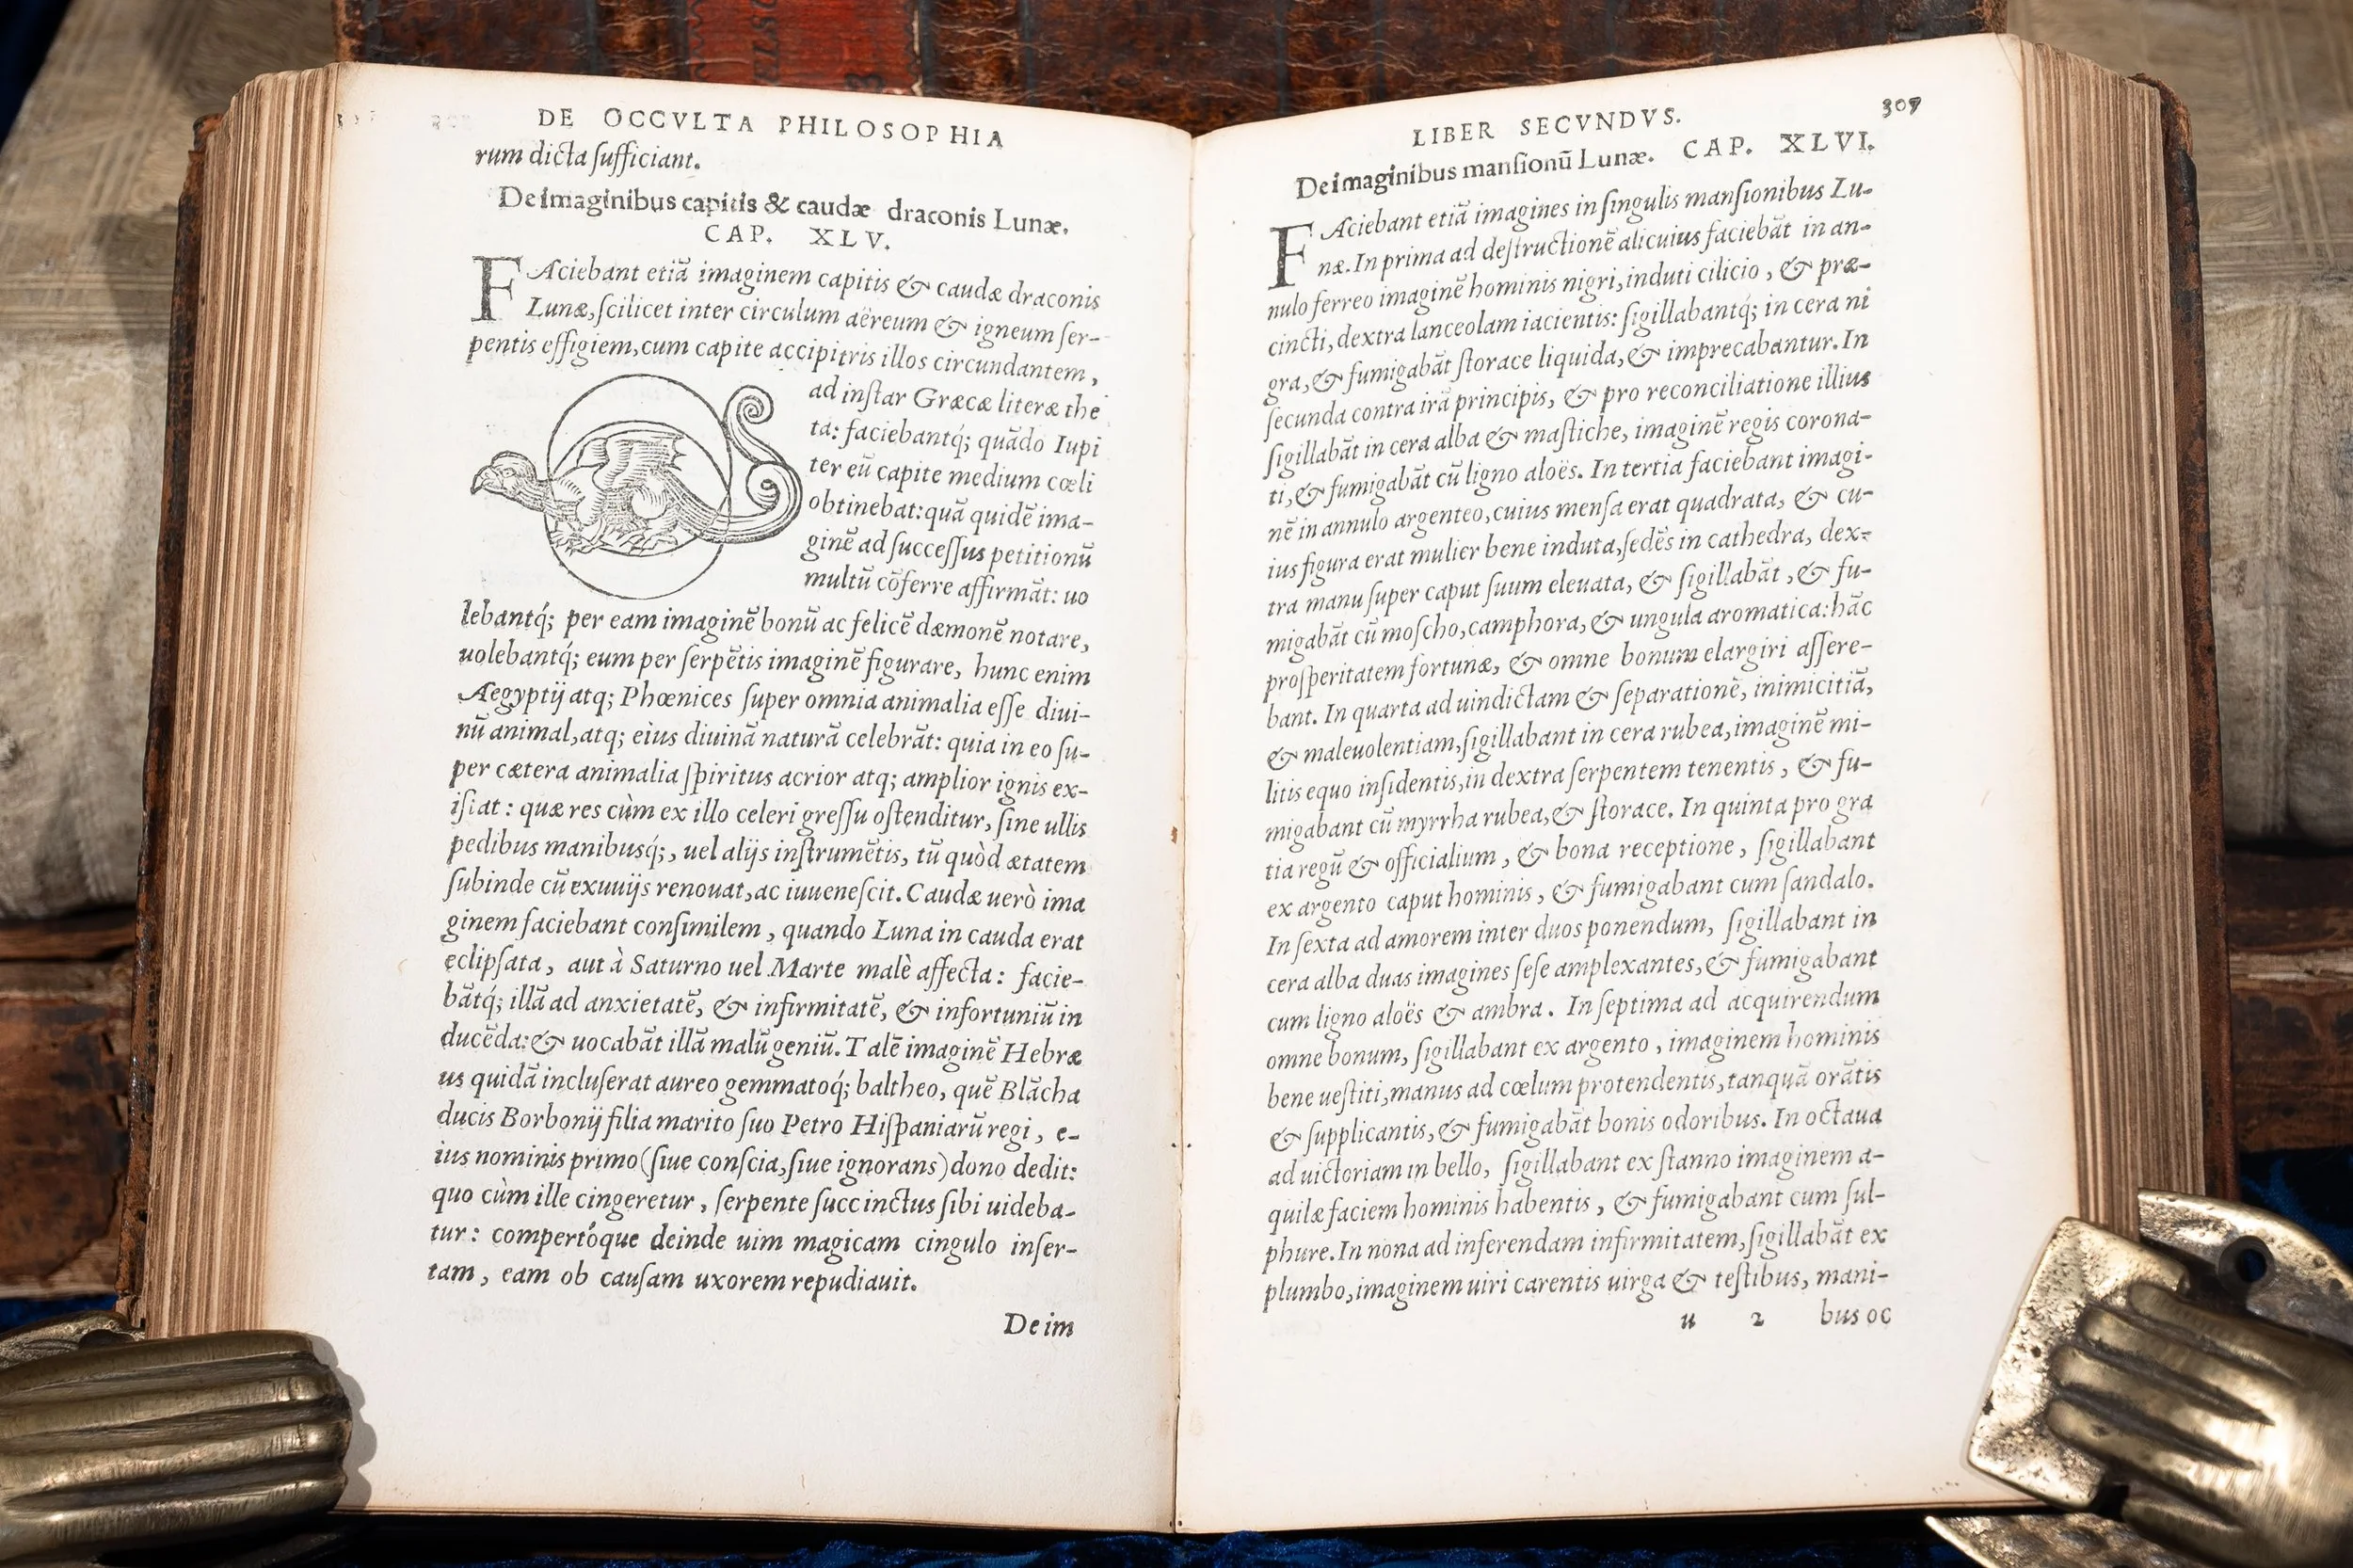 DE OCCVLTA PHILOSOPHIA
rum dicta ſufficiant.
De imaginibus capitis & caudæ draconis Lunæ.
CAP. XLV.
FAciebant etiã imaginem capitis & caudæ draconis
Lunæ, ſcilicet inter circulum aëreum & igneum ſer-
pentis effigiem, cum capite accipitris illos circundantem,
ad inſtar Græcæ literæ the
ta: faciebantq́; quãdo Iupi
ter eũ capite medium cœli
obtinebat: quã quidẽ ima-
ginẽ ad ſucceſſus petitionũ
multũ cõferre affirmãt: uo
lebantq́; per eam imaginẽ bonũ ac felicẽ dæmonẽ notare,
uolebantq́; eum per ſerpẽtis imaginẽ figurare, hunc enim
Aegyptij atq; Phœnices ſuper omnia animalia eſſe diui-
nũ animal, atq; eius diuinã naturã celebrãt: quia in eo ſu-
per cætera animalia ſpiritus acrior atq; amplior ignis ex-
iſtat: quæ res cùm ex illo celeri greſſu oſtenditur, ſine ullis
pedibus manibusq́;, uel alijs inſtrumẽtis, tũ quòd ætatem
ſubinde cũ exuuijs renouat, ac iuueneſcit. Caudæ uerò ima
ginem faciebant conſimilem, quando Luna in cauda erat
eclipſata, aut à Saturno uel Marte malè affecta: facie-
bãtq́; illã ad anxietatẽ, & infirmitatẽ, & infortuniũ in
ducẽda: & uocabãt illã malũ geniũ. Talẽ imaginẽ Hebræ
us quidã incluſerat aureo gemmatoq́; baltheo, quẽ Blãcha
ducis Borbonij filia marito ſuo Petro Hiſpaniarũ regi, e-
ius nominis primo (ſiue conſcia, ſiue ignorans) dono dedit:
quo cùm ille cingeretur, ſerpente ſuccinctus ſibi uideba-
tur: compertóque deinde uim magicam cingulo inſer-
tam, eam ob cauſam uxorem repudiauit.
De im
LIBER SECVNDVS. 307
De imaginibus manſionũ Lunæ. CAP. XLVI.
FAciebant etiã imagines in ſingulis manſionibus Lu-
næ. In prima ad deſtructionẽ alicuius faciebãt in an-
nulo ferreo imaginẽ hominis nigri, induti cilicio, & præ-
cincti, dextra lanceolam iacientis: ſigillabantq́; in cera ni
gra, & fumigabãt ſtorace liquida, & imprecabantur. In
ſecunda contra irã principis, & pro reconciliatione illius
ſigillabãt in cera alba & maſtiche, imaginẽ regis corona-
ti, & fumigabãt cũ ligno aloës. In tertia faciebant imagi-
nẽ in annulo argenteo, cuius menſa erat quadrata, & cu-
ius figura erat mulier bene induta, ſedẽs in cathedra, dex-
tra manu ſuper caput ſuum eleuata, & ſigillabãt, & fu-
migabãt cũ moſcho, camphora, & ungula aromatica: hãc
proſperitatem fortunæ, & omne bonum elargiri aſſere-
bant. In quarta ad uindictam & ſeparationẽ, inimicitiã,
& maleuolentiam, ſigillabant in cera rubea, imaginẽ mi-
litis equo inſidentis, in dextra ſerpentem tenentis, & fu-
migabant cũ myrrha rubea, & ſtorace. In quinta pro gra
tia regũ & officialium, & bona receptione, ſigillabant
ex argento caput hominis, & fumigabant cum ſandalo.
In ſexta ad amorem inter duos ponendum, ſigillabant in
cera alba duas imagines ſeſe amplexantes, & fumigabant
cum ligno aloës & ambra. In ſeptima ad acquirendum
omne bonum, ſigillabant ex argento, imaginem hominis
bene ueſtiti, manus ad cœlum protendentis, tanquã orãtis
& ſupplicantis, & fumigabãt bonis odoribus. In octaua
ad uictoriam in bello, ſigillabant ex ſtanno imaginem a-
quilæ faciem hominis habentis, & fumigabant cum ſul-
phure. In nona ad inferendam infirmitatem, ſigillabãt ex
plumbo, imaginem uiri carentis uirga & teſtibus, mani-
u 2 bus oc